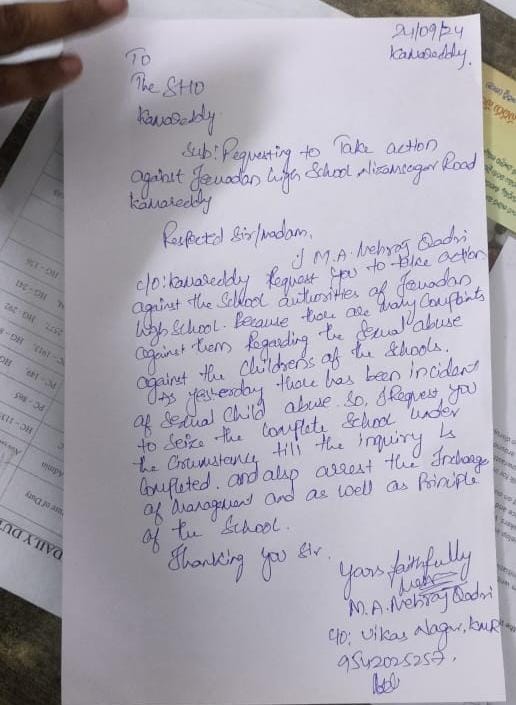 24/09/24
Kamareddy.
To
The SHO
Kamareddy
Sub: Requesting to Take action
against Jeevadan high School Nizamsagar Road
kamareddy
Respected Sir/madam,
I M.A. Mehraj Qadri,
c/o: kamareddy Request you to take action
against the School authorities of Jeevadan
high School. Because there are many Complaints
against them Regarding the Sexual abuse
against the childrens of the schools.
As yesterday there has been incident
of sexual child abuse. So, I Request you
to seize the complete School under
the Circumstance till the inquiry is
Completed. and also arrest the Incharge
of Management and as well as Principle
of the School.
Thanking you Sir.
Yours faithfully
M.A. Mehraj Qadri
c/o: Vikas Nagar, KMR
9542025257.
DAILY DUT
ure of Duty
Admin
HC - 1135
PC - 885
HC - 241
HC - 136